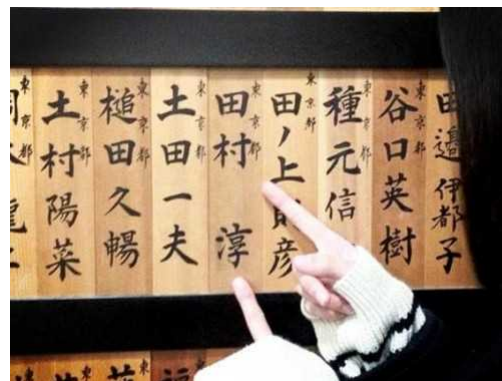 田邊伊都子
東京都
谷口英樹
東京都
種元信
東京都
田ノ上則彦
東京都
田村 淳
東京都
土田一夫
東京都
槌田久暢
東京都
土村陽菜